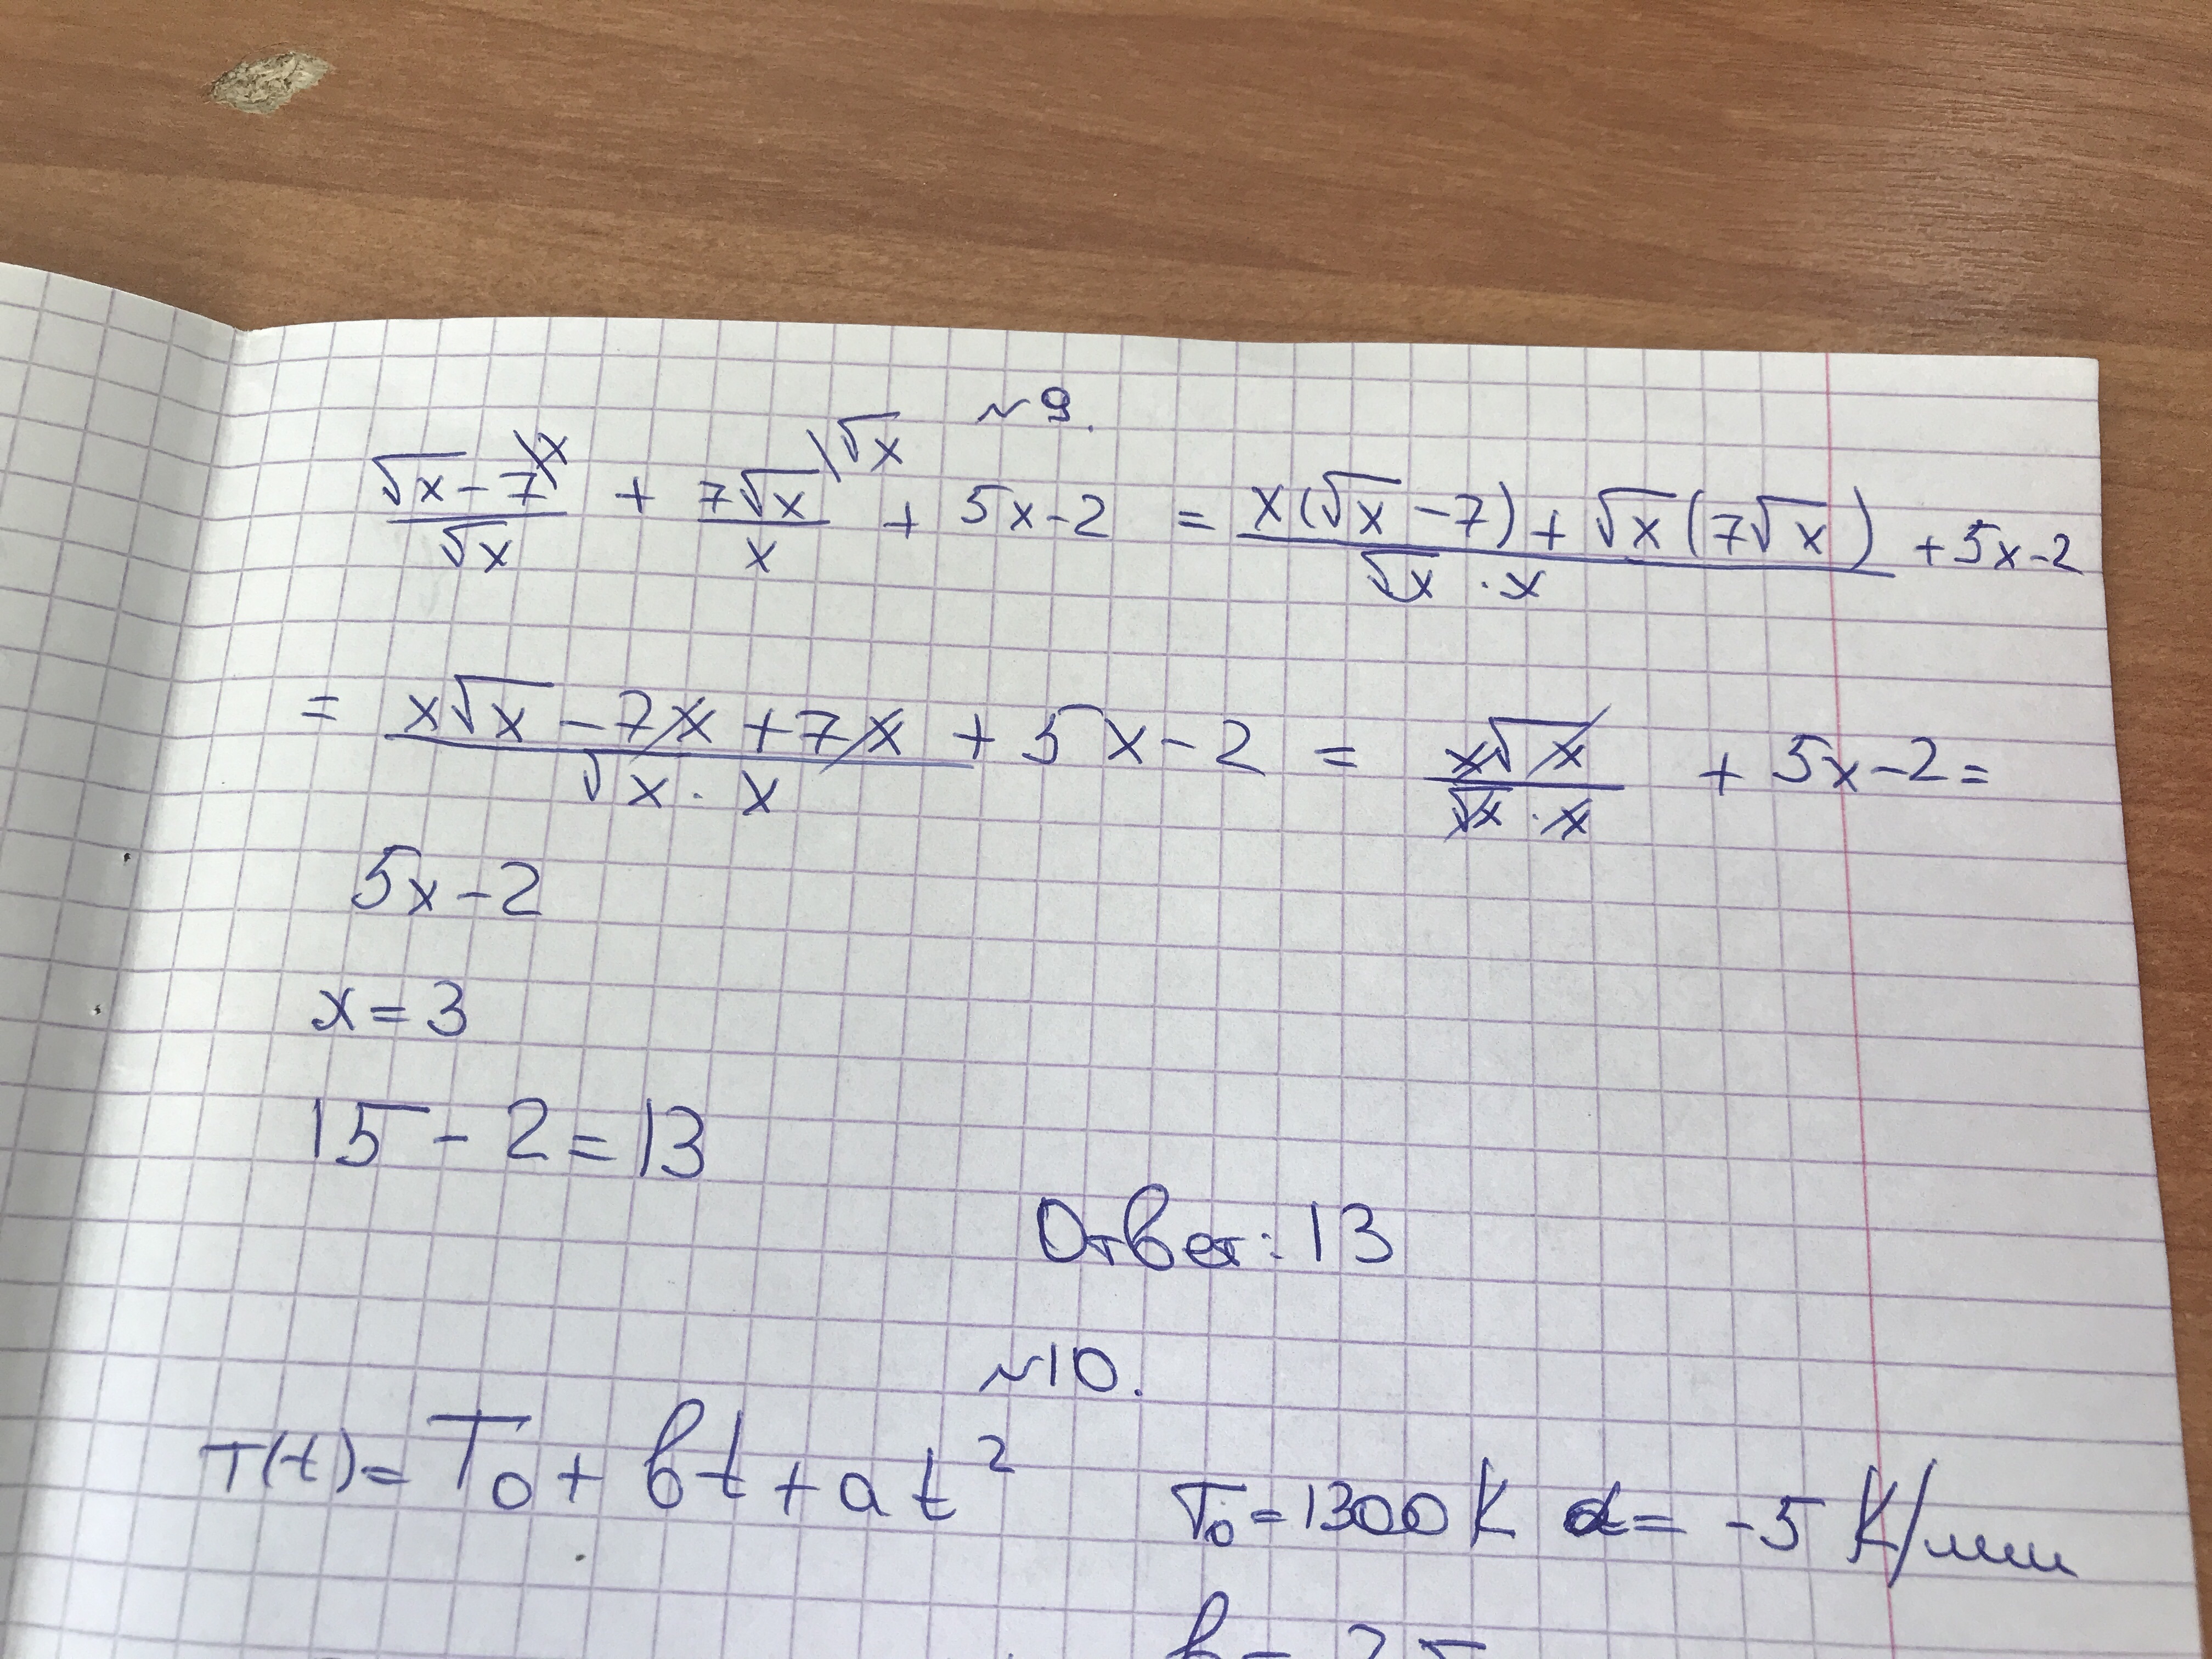 №9.
(√x-7)/√x \x + 7√x/x \√x + 5x-2 = (x(√x-7)+√x(7√x))/(√x·x) +5x-2
= (x√x-7x+7x)/(√x·x) + 5x-2 = x√x/(√x·x) + 5x-2=
5x-2
x=3
15-2=13
Ответ: 13
№10.
T(t)=T₀+bt+at²
T₀=1300K a= -5 К/мин